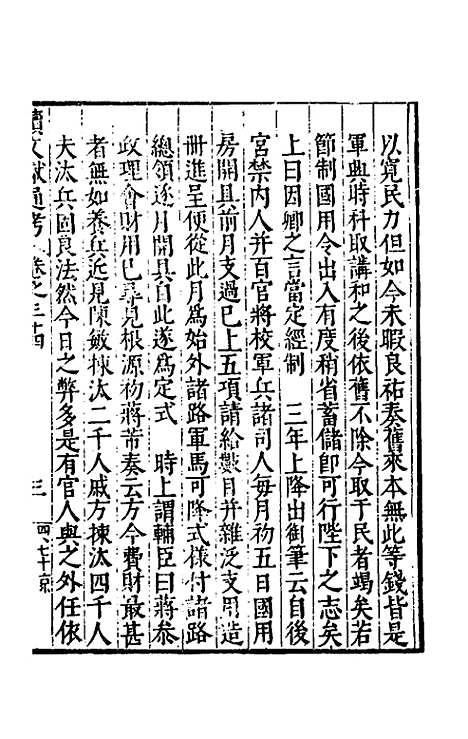 以寛民力但如今未暇良祐奏舊來本無此等錢皆是
軍興時科取講和之後依舊不除今取于民者竭矣若
節制國用令出入有度稍省蓄儲卽可行陛下之志矣
上曰因卿之言當定經制　三年上降出御筆云自後
宮禁內人并百官將校軍兵諸司人每月初五日國用
房開具前月支過已上五項請給數目并雜泛支用造
冊進呈便從此月爲始外諸路軍馬可降式樣付諸路
總領逐月開具自此遂爲定式　時上謂輔臣曰蔣叅
政理會財用已尋見根源初蔣芾奏云方今費財最甚
者無如養兵近見陳敏揀汰二千人戚方揀汰四千人
夫汰兵固良法然今日之弊多是有官人與之外任依
續文獻通考　卷之三十四　三